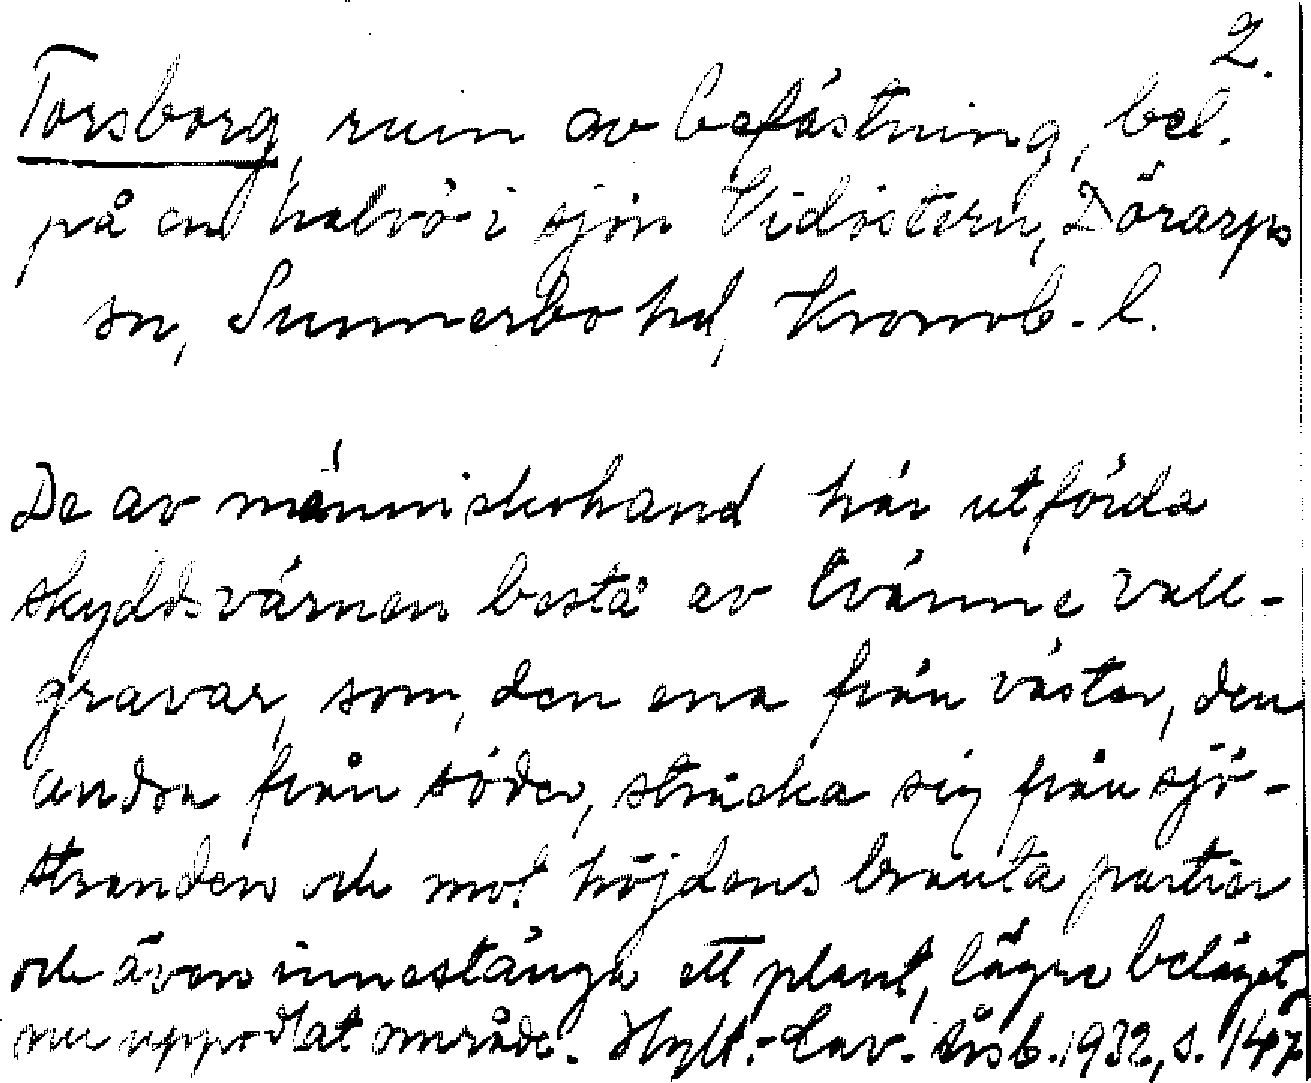 2.
Torsborg, ruin av befästning, bel.
på en halvö i sjön Vidöstern, Dörarps
sn, Sunnerbo hd, Kronob. l.
De av människohand här utförda
skyddsvärnen bestå av tvänne vall-
gravar, som, den ena från väster, den
andra från söder, sträcka sig från sjö-
stranden och mot höjdens branta partier
och även innestänga ett plant, lägre beläget,
nu uppodlat område. Hylt.-Cav. årsb. 1932, s. 147